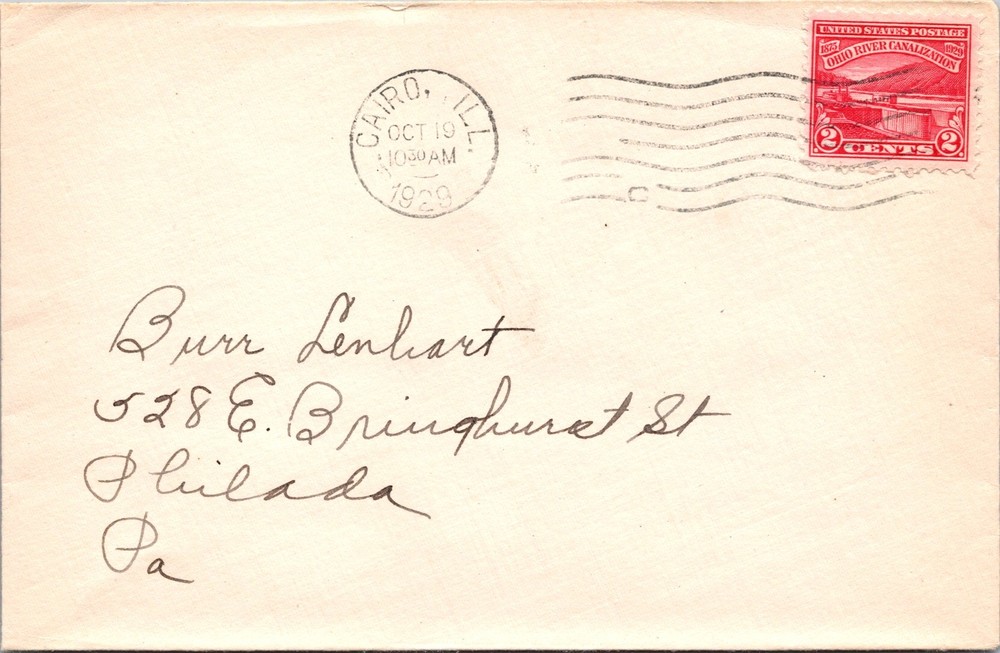 CAIRO, ILL.
OCT 19
10 30 AM
1929
UNITED STATES POSTAGE
1875 1929
OHIO RIVER CANALIZATION
2 CENTS 2
Burr Lenhart
528 E. Bringhurst St
Philada
Pa